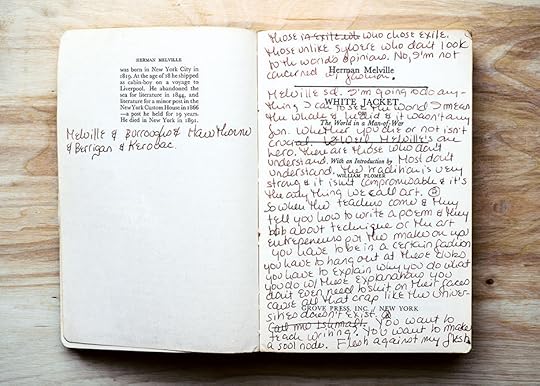 HERMAN MELVILLE
was born in New York City in
1819. At the age of 18 he shipped
as cabin-boy on a voyage to
Liverpool. He abandoned the
sea for literature in 1844, and
literature for a minor post in the
New York Custom House in 1866
—a post he held for 19 years.
He died in New York in 1891.
Melville & Burroughs & Hawthorne
& Berrigan & Kerouac.
those in exile who chose exile.
those unlike who don't look
to the world's opinions. No, I'm not
concerned fashion.
Herman Melville
Melville sd. I'm going to do any-
thing I can to see the world I mean
WHITE JACKET
the whale & he did & it wasn't any
The World in a Man-of-War
fun. Whether you die or not isn't
crucial. Melville's are
hero. there are those who don't
understand. Most don't
With an Introduction by
understand. the tradition is very
WILLIAM PLOMER
strong & it isn't compromisable & it's
the only thing we call art.
So when the teachers come & they
tell you how to write a poem & they
about technique or the art
entrepreneurs put the make on you
you have to be in a certain fashion
you have to hang out at these clubs
you have to explain why you do what
you do w/ these explanations you
don't even need to shit on their faces
cause all that crap like the Univer-
sities doesn't exist.
GROVE PRESS INC. / NEW YORK
Call me Ishmael. You want to
teach writing? You want to make
a soul node. Flesh against my flesh